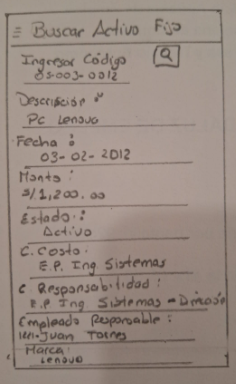 Buscar Activo Fijo
Ingresar Código
03-003-0012
Descripción :
PC Lenovo
Fecha :
03-02-2012
Monto :
S/1,200.00
Estado :
Activo
C. Costo :
E.P. Ing Sistemas
C. Responsabilidad :
E.P Ing Sistemas -
Empleado Responsable :
Juan Torres
Marca :
Lenovo